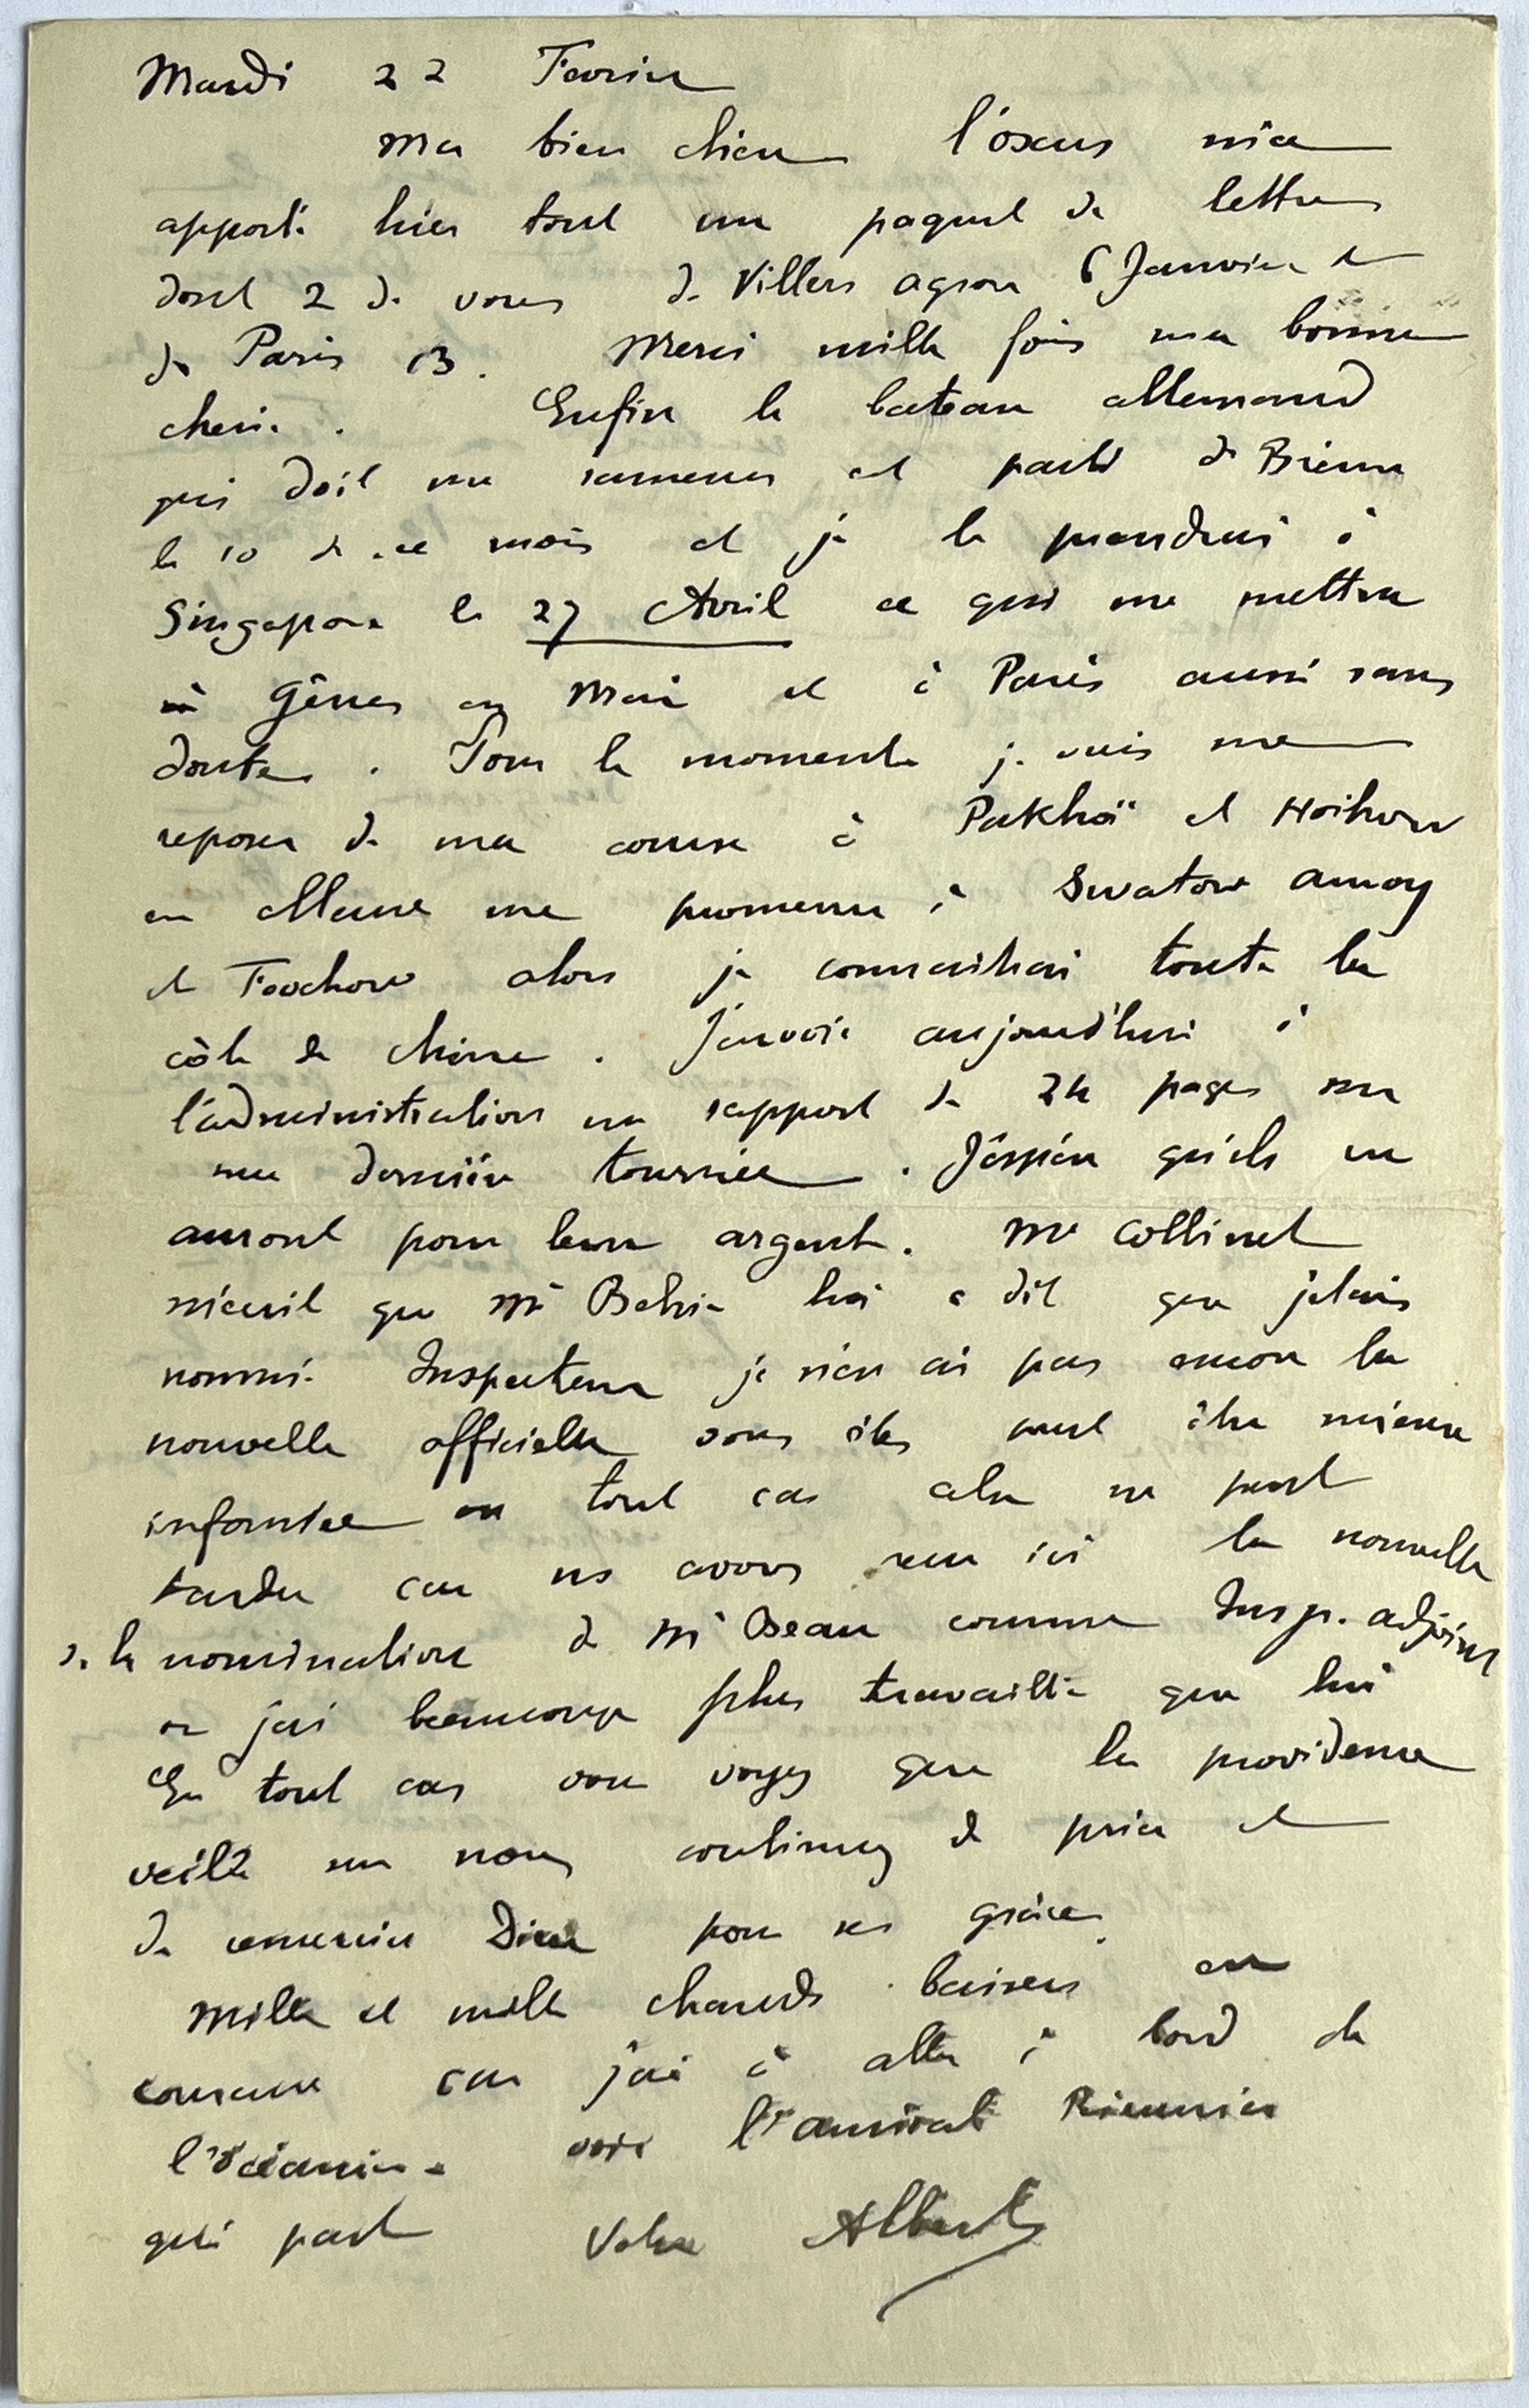 Mardi 22 Fevrier
Ma bien chère l'oxus m'a
apporté hier tout un paquet de lettres
dont 2 de vous de Villers agron 6 Janvier et
de Paris 13. Merci mille fois ma bonne
cherie. Enfin le bateau allemand
qui doit me ramener est parti de Brême
le 10 de ce mois et je le prendrai à
Singapore le 27 Avril ce qui me mettra
à Gênes en Mai et à Paris aussi sans
doute. Pour le moment je vais me
reposer de ma course à Pakhoï et Hoihow
en allant me promener à Swatow Amoy
et Foochow alors je connaitrai toute la
côte de Chine. J'envoie aujourd'hui à
l'administration un rapport de 24 pages sur
ma dernière tournée. J'éspère qu'ils en
auront pour leur argent. Mr Collinet
m'écrit que Mr Belin lui a dit que j'etais
nommé Inspecteur je n'en ai pas encore la
nouvelle officielle vous êtes peut être mieux
informée en tout cas cela ne peut
tarder car ns avons reçu ici la nouvelle
de la nomination de Mr Beau comme Insp. adjoint
or j'ai beaucoup plus travaillé que lui
En tout cas vous voyez que la providence
veille sur nous continuez de prier et
de remercier Dieu pour ses grâces.
Mille et mille chauds baisers en
courant car j'ai à aller à bord de
l'océanien voir l'amiral Rieunier
qui part Votre Albert